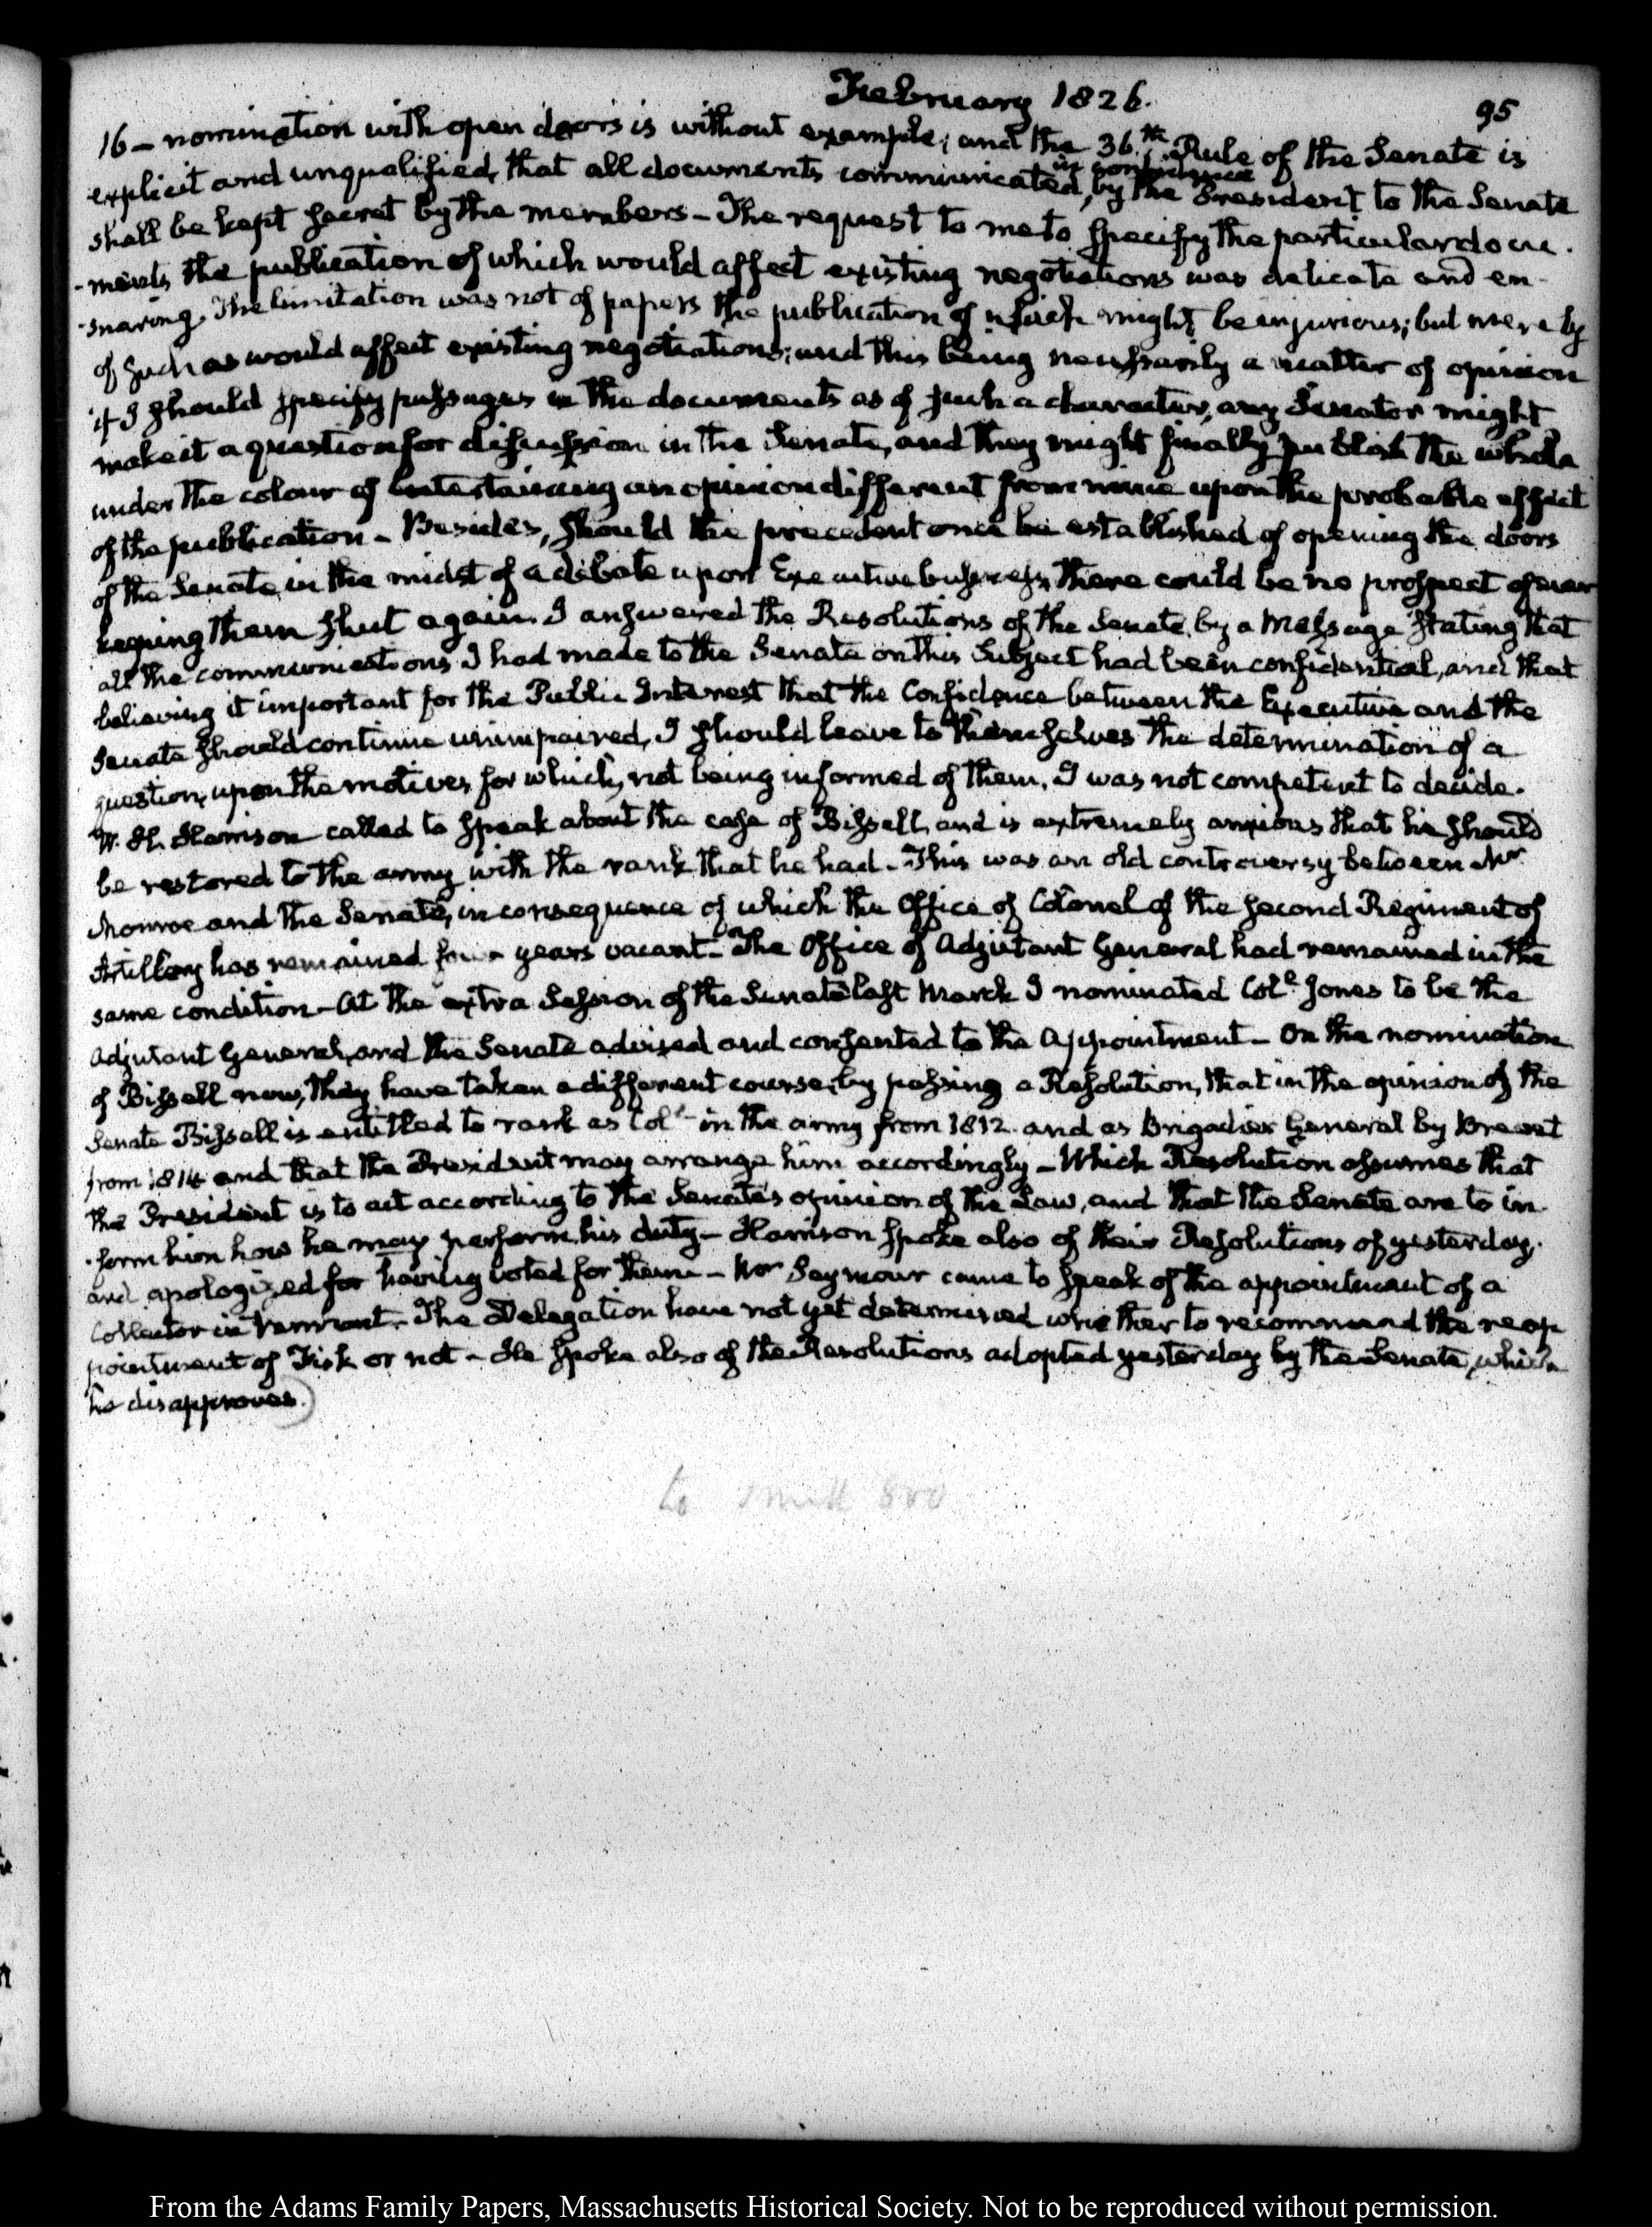 February 1826.
95
16 — nomination with open doors is without example; and the 36.th Rule of the Senate is
explicit and unqualified, that all documents communicated, in confidence by the President to the Senate
shall be kept secret by the members — The request to me to specify the particular docu-
-ments, the publication of which would affect existing negotiations was delicate and en-
-snaring. The limitation was not of papers the publication of which might be injurious; but merely
of such as would affect existing negotiations; and this being necessarily a matter of opinion
if I should specify passages in the documents as of such a character, any Senator might
make it a question for discussion in the Senate, and they might finally publish the whole
under the colour of entertaining an opinion different from mine upon the probable effect
of the publication — Besides, should the precedent once be established of opening the doors
of the Senate, in the midst of a debate upon Executive business, there could be no prospect of ever
keeping them shut again. I answered the Resolutions of the Senate, by a Message stating that
all the communications I had made to the Senate on this Subject had been confidential, and that
believing it important for the Public Interest that the Confidence between the Executive and the
Senate should continue unimpaired, I should leave to themselves the determination of a
question, upon the motives for which, not being informed of them, I was not competent to decide.
W. H. Harrison called to speak about the case of Bissell, and is extremely anxious that he should
be restored to the army with the rank that he had — This was an old controversy between Mr
Monroe and the Senate, in consequence of which the Office of Colonel of the second Regiment of
Artillery has remained four years vacant — The Office of Adjutant General had remained in the
same condition — At the extra Session of the Senate last March I nominated Coll. Jones to be the
Adjutant General, and the Senate advised and consented to the Appointment — On the nomination
of Bissell now, they have taken a different course, by passing a Resolution, that in the opinion of the
Senate Bissell is entitled to rank as Coll. in the army from 1812. and as Brigadier General by Brevet
from 1814 and that the President may arrange him accordingly — Which Resolution assumes that
the President is to act according to the Senate's opinion of the Law, and that the Senate are to in-
-form him how he may perform his duty — Harrison spoke also of their Resolutions of yesterday,
and apologized for having voted for them — Mr Seymour came to speak of the appointment of a
Collector in Vermont. The Delegation have not yet determined whether to recommend the reap
pointment of Fisk or not — He spoke also of the Resolutions adopted yesterday by the Senate, which
he disapproves.)
From the Adams Family Papers, Massachusetts Historical Society. Not to be reproduced without permission.